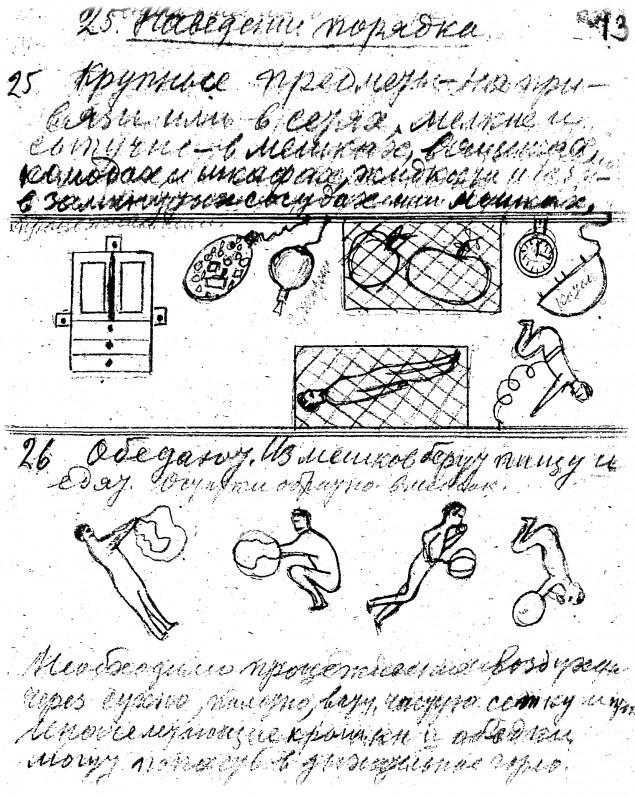 25. Наведении порядка 13
25 Крупные предметы — на при-
вязи или в сетях, мелкие и
сыпучие — в мешках, в ящиках,
комодах и шкафах, жидкости и
в замкнутых сосудах или мешках.
26 Обедают. Из мешков берут пищу и
едят. обратно в мешок.
Необходимо процеживание воздуха
через сухую, частую сетку и
крошки и объедки
могут попасть в дыхательное горло.